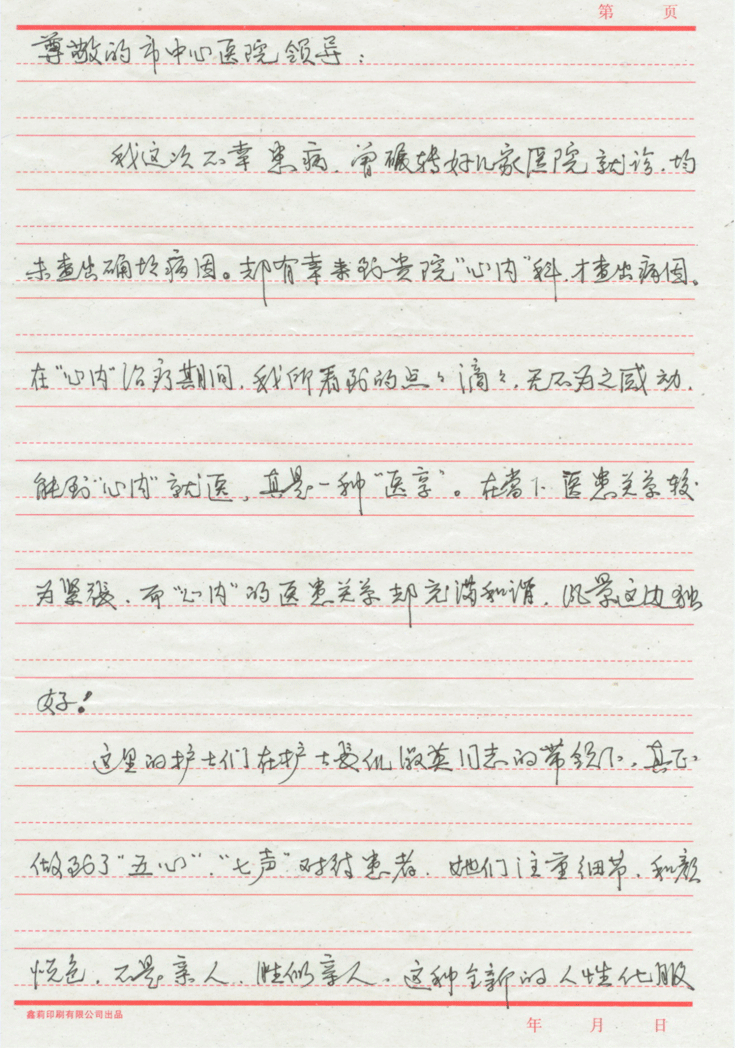 第 页
尊敬的市中心医院领导:
我这次不幸患病,曾辗转好几家医院就诊,均
未查出确切病因。却有幸来到贵院“心内”科,才查出病因。
在“心内”治疗期间,我所看到的点々滴々,无不为之感动,
能到“心内”就医,真是一种“医享”。在当下医患关系较
为紧张,而“心内”的医患关系却充满和谐,风景这边独
好!
这里的护士们在护士长 英同志的带领下,真正
做到了“五心”、“七声”对待患者,她们注重细节,和颜
悦色,不是亲人,胜似亲人,这种全新的人性化服
鑫莉印刷有限公司出品
年 月 日